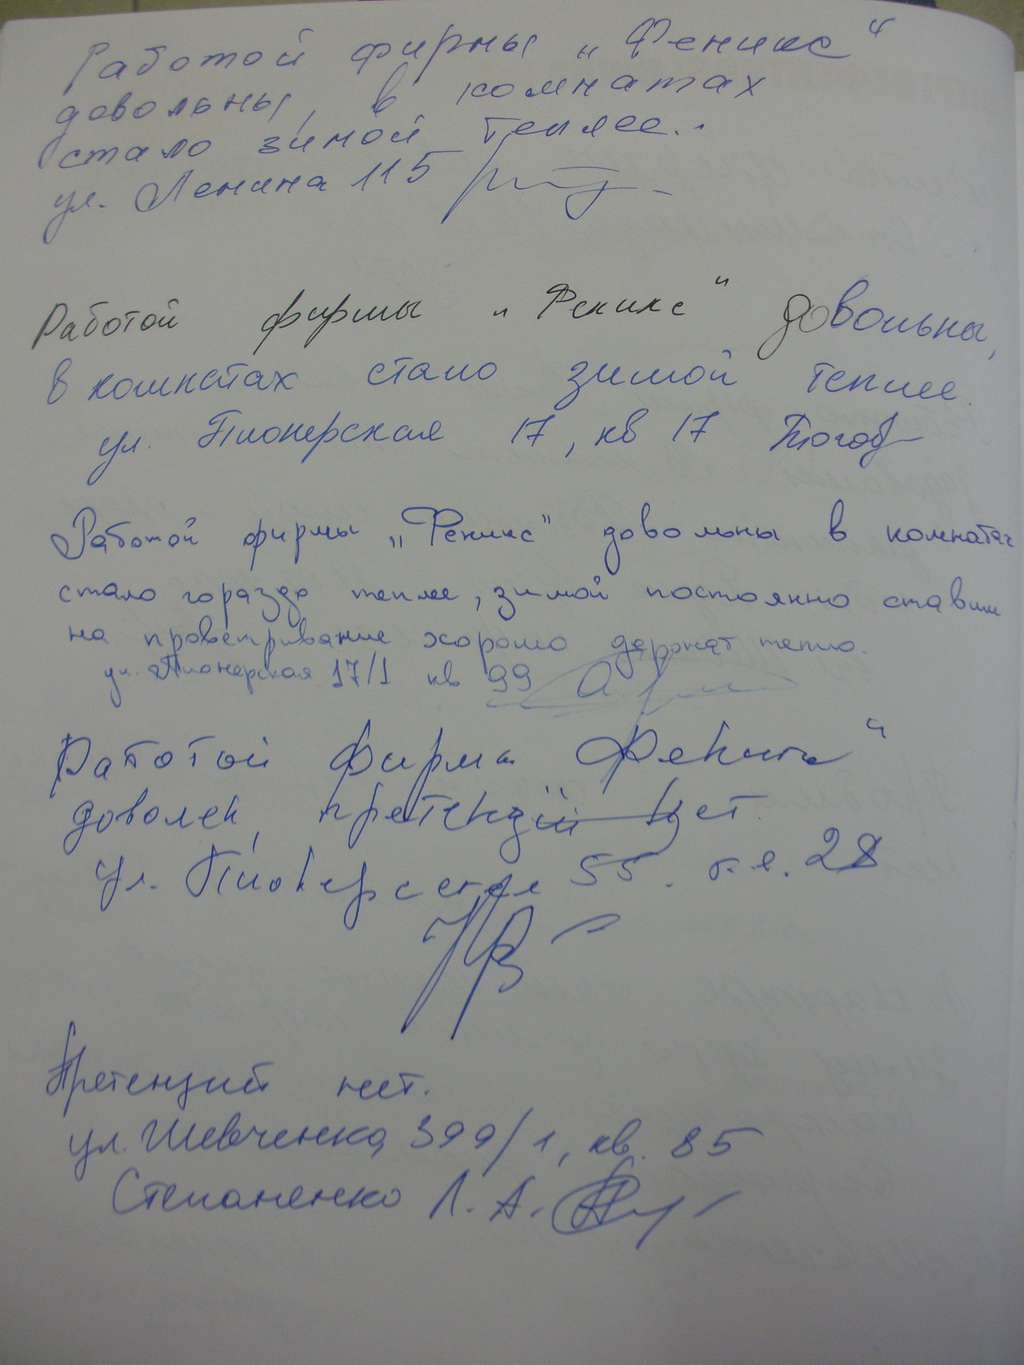 Работой фирмы „Феникс“
довольны, в комнатах
стало зимой теплее.
ул. Ленина 115
Работой фирмы „Феникс“ довольны,
в комнатах стало зимой теплее.
ул. Пионерская 17, кв 17
Работой фирмы „Феникс“ довольны в комнатах
стало гораздо теплее, зимой постоянно ставим
на проветривание хорошо держат тепло.
ул. Пионерская 17/1 кв 99
Работой фирма Феникс“
доволен, претензий нет.
ул. Пионерская 55. 28
Претензий нет.
ул. Шевченко, 399/1, кв. 85
Степаненко Л. А.